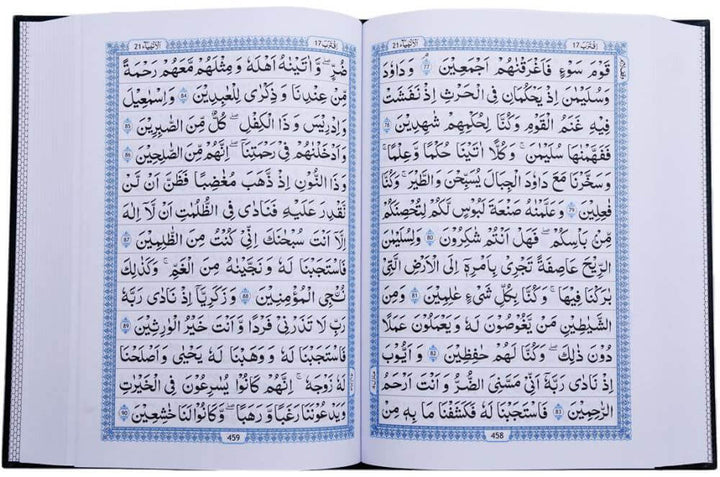 اِقْتَرَبَ 17 اَلْاَنْبِيَآء 21
قَوْمَ سَوْءٍ فَاَغْرَقْنٰهُمْ اَجْمَعِيْنَ 77 وَ دَاوٗدَ
وَسُلَيْمٰنَ اِذْ يَحْكُمَانِ فِى الْحَرْثِ اِذْ نَفَشَتْ
فِيْهِ غَنَمُ الْقَوْمِ وَكُنَّا لِحُكْمِهِمْ شٰهِدِيْنَ 78
فَفَهَّمْنٰهَا سُلَيْمٰنَ ۚ وَكُلًّا اٰتَيْنَا حُكْمًا وَّعِلْمًا ۚ
وَسَخَّرْنَا مَعَ دَاوٗدَ الْجِبَالَ يُسَبِّحْنَ وَالطَّيْرَ ۚ وَكُنَّا
فٰعِلِيْنَ 79 وَعَلَّمْنٰهُ صَنْعَةَ لَبُوْسٍ لَّكُمْ لِتُحْصِنَكُمْ
مِّنْ بَاْسِكُمْ ۚ فَهَلْ اَنْتُمْ شٰكِرُوْنَ 80 وَلِسُلَيْمٰنَ
الرِّيْحَ عَاصِفَةً تَجْرِيْ بِاَمْرِهٖٓ اِلَى الْاَرْضِ الَّتِيْ
بٰرَكْنَا فِيْهَا ۚ وَكُنَّا بِكُلِّ شَيْءٍ عٰلِمِيْنَ 81 وَمِنَ
الشَّيٰطِيْنِ مَنْ يَّغُوْصُوْنَ لَهٗ وَيَعْمَلُوْنَ عَمَلًا
دُوْنَ ذٰلِكَ ۚ وَكُنَّا لَهُمْ حٰفِظِيْنَ 82 وَ اَيُّوْبَ
اِذْ نَادٰى رَبَّهٗٓ اَنِّيْ مَسَّنِيَ الضُّرُّ وَ اَنْتَ اَرْحَمُ
الرّٰحِمِيْنَ 83 فَاسْتَجَبْنَا لَهٗ فَكَشَفْنَا مَا بِهٖ مِنْ
458
اِقْتَرَبَ 17 اَلْاَنْبِيَآء 21
ضُرٍّ وَّ اٰتَيْنٰهُ اَهْلَهٗ وَ مِثْلَهُمْ مَّعَهُمْ رَحْمَةً
مِّنْ عِنْدِنَا وَ ذِكْرٰى لِلْعٰبِدِيْنَ 84 وَ اِسْمٰعِيْلَ
وَ اِدْرِيْسَ وَ ذَا الْكِفْلِ ۚ كُلٌّ مِّنَ الصّٰبِرِيْنَ 85
وَ اَدْخَلْنٰهُمْ فِيْ رَحْمَتِنَا ۚ اِنَّهُمْ مِّنَ الصّٰلِحِيْنَ 86
وَ ذَا النُّوْنِ اِذْ ذَّهَبَ مُغَاضِبًا فَظَنَّ اَنْ لَّنْ
نَّقْدِرَ عَلَيْهِ فَنَادٰى فِي الظُّلُمٰتِ اَنْ لَّآ اِلٰهَ
اِلَّآ اَنْتَ سُبْحٰنَكَ اِنِّيْ كُنْتُ مِنَ الظّٰلِمِيْنَ 87
فَاسْتَجَبْنَا لَهٗ وَ نَجَّيْنٰهُ مِنَ الْغَمِّ ۚ وَكَذٰلِكَ
نُـنْجِي الْمُؤْمِنِيْنَ 88 وَ زَكَرِيَّآ اِذْ نَادٰى رَبَّهٗ
رَبِّ لَا تَذَرْنِيْ فَرْدًا وَّ اَنْتَ خَيْرُ الْوٰرِثِيْنَ 89
فَاسْتَجَبْنَا لَهٗ وَ وَهَبْنَا لَهٗ يَحْيٰى وَ اَصْلَحْنَا
لَهٗ زَوْجَهٗ ۚ اِنَّهُمْ كَانُوْا يُسٰرِعُوْنَ فِي الْخَيْرٰتِ
وَ يَدْعُوْنَنَا رَغَبًا وَّ رَهَبًا ۚ وَ كَانُوْا لَنَا خٰشِعِيْنَ 90
459